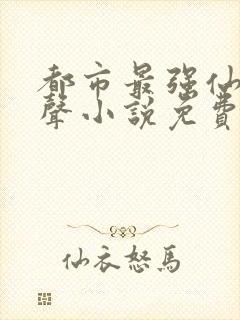 都市最强仙
聲小說免費
仙衣怒馬